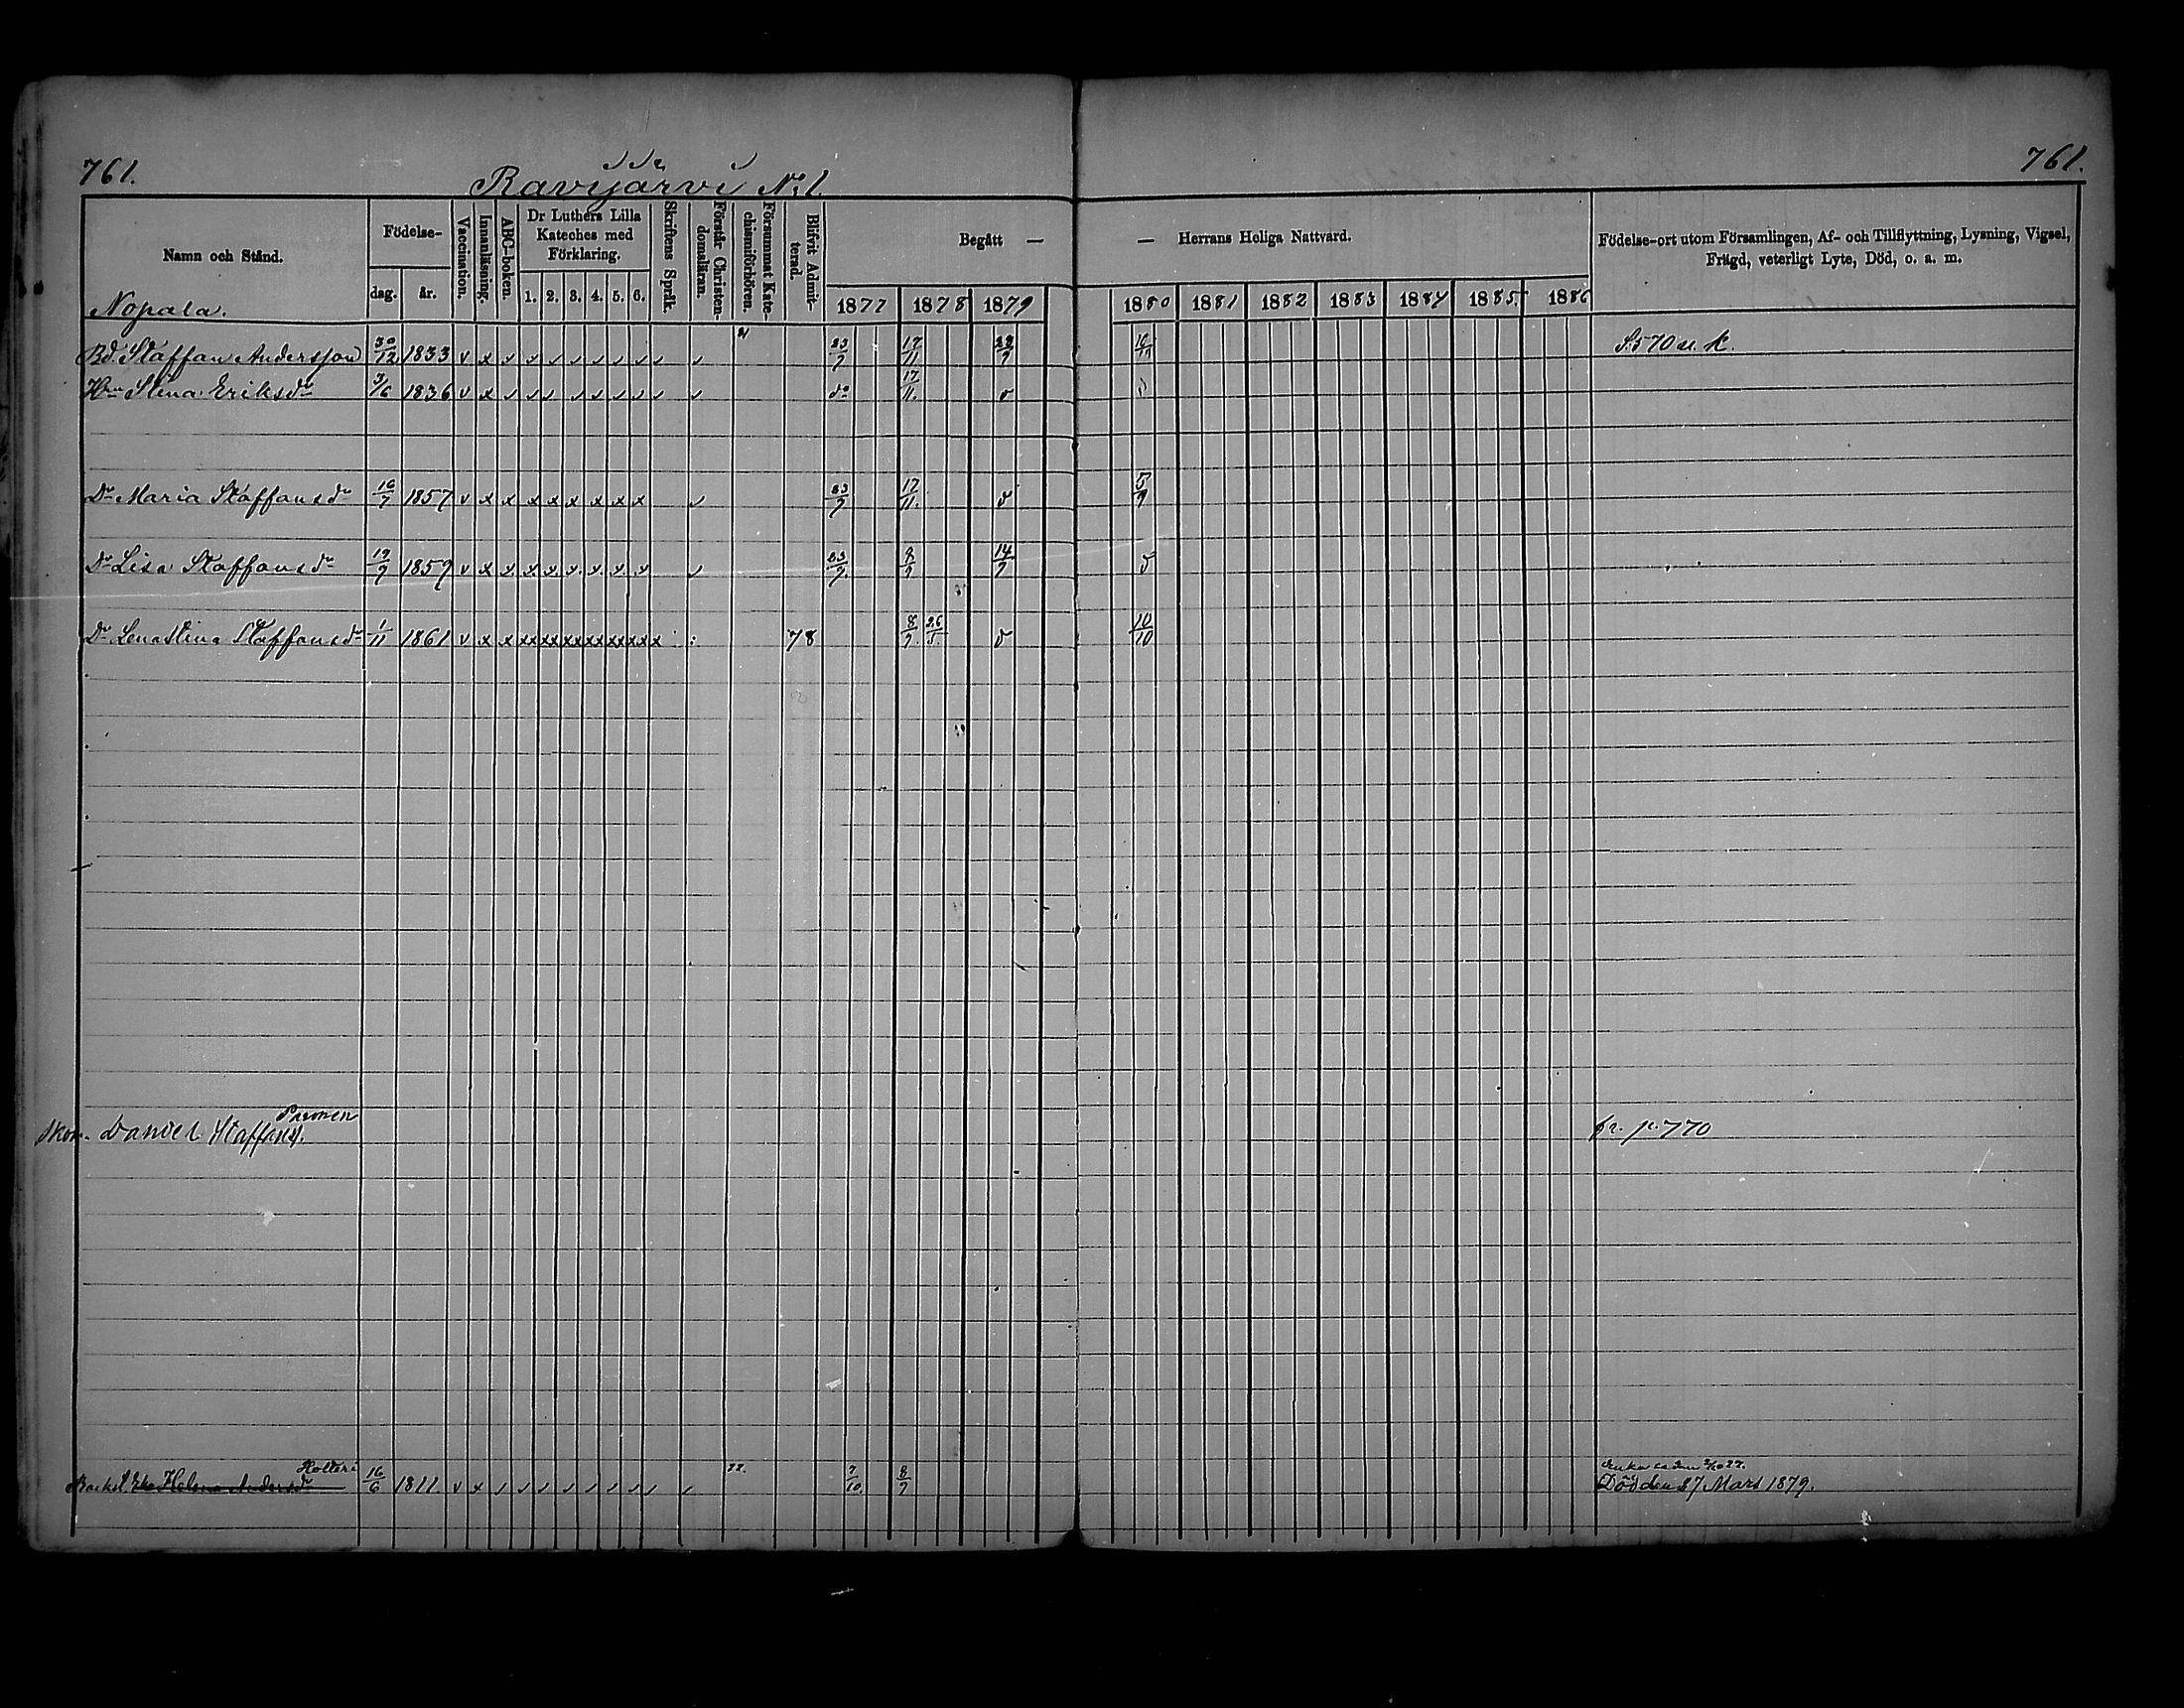 761.
Ravijärvi No 1
761.
Namn och Stånd.
Födelse-
dag.
år.
Vaccination.
Innanläsning.
ABC-boken.
Dr Luthers Lilla Kateches med Förklaring.
1. 2. 3. 4. 5. 6.
Skriftens Språk.
Förstår Christen-domsläran.
Försummat Kate-chismiförhören.
Blifvit Admit-terad.
Begått —
— Herrans Heliga Nattvard.
1877 1878 1879 1880 1881 1882 1883 1884 1885. 1886
Födelse-ort utom Församlingen, Af- och Tillflyttning, Lysning, Vigsel, Frägd, veterligt Lyte, Död, o. a. m.
Nopala.
Bd. Staffan Andersson 30/12 1833 v x v v v v v v v v v 23/9 17/11 16/11
Hun Stina Eriksdr 3/6 1836 v x v v v v v v v v v do 17/11.
Dr Maria Staffansdr 16/7 1857 v x x x x x x x x v 23/9 17/11. d 5/9
Dr Lisa Staffansdr 19/9 1859 v x x x x x x x x v 23/9 8/9 14/9 d
Dr Lenastina Staffansdr 1/11 1861 v x x xx xx xx xx xx xx x 78 8/9. 26/1. d 10/10
Pironen
Daniel Staffans. fr. p. 770
Holteri
Helena Andersdr 16/6 1811. v x v v v v v v v v v 22. 7/10. 8/9
Död den 27 Mars 1879.